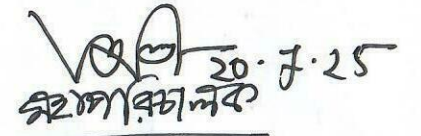 20.7.25
মহাপরিচালক